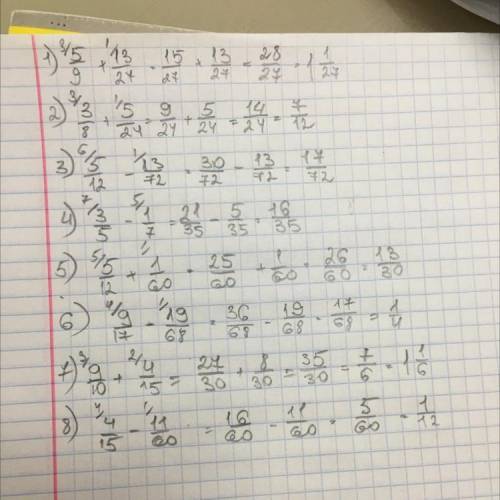 1) ³/5/9 + ¹/13/27 = 15/27 + 13/27 = 28/27 = 1 1/27
2) ³/3/8 + ¹/5/24 = 9/24 + 5/24 = 14/24 = 7/12
3) ⁶/5/12 - ¹/13/72 = 30/72 - 13/72 = 17/72
4) ⁷/3/5 - ⁵/1/7 = 21/35 - 5/35 = 16/35
5) ⁵/5/12 + ¹/1/60 = 25/60 + 1/60 = 26/60 = 13/30
6) ⁴/9/17 - ¹/19/68 = 36/68 - 19/68 = 17/68 = 1/4
7) ³/9/10 + ²/4/15 = 27/30 + 8/30 = 35/30 = 7/6 = 1 1/6
8) ⁴/4/15 - ¹/11/60 = 16/60 - 11/60 = 5/60 = 1/12